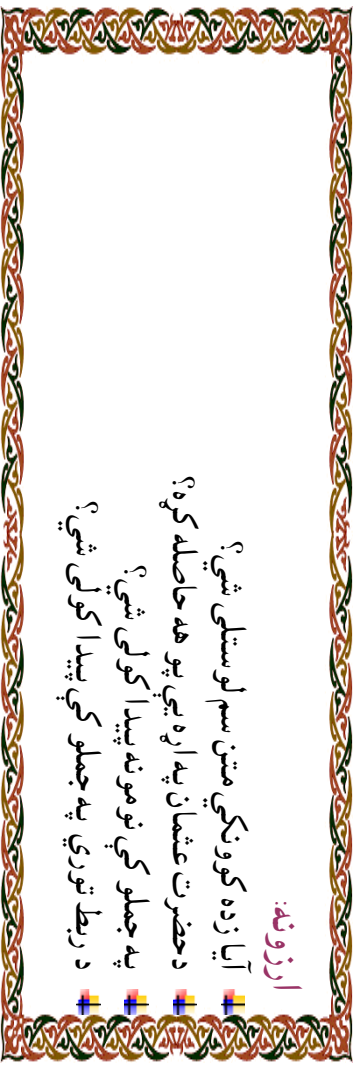 ارزونه:
آیا زده کوونکي متن سم لوستلی شي؟
دحضرت عثمان په اړه یې پو هه حاصله کړه؟
په جملو کې نومونه پیدا کولی شي؟
د ربط توري په جملو کې پیدا کولی شي؟